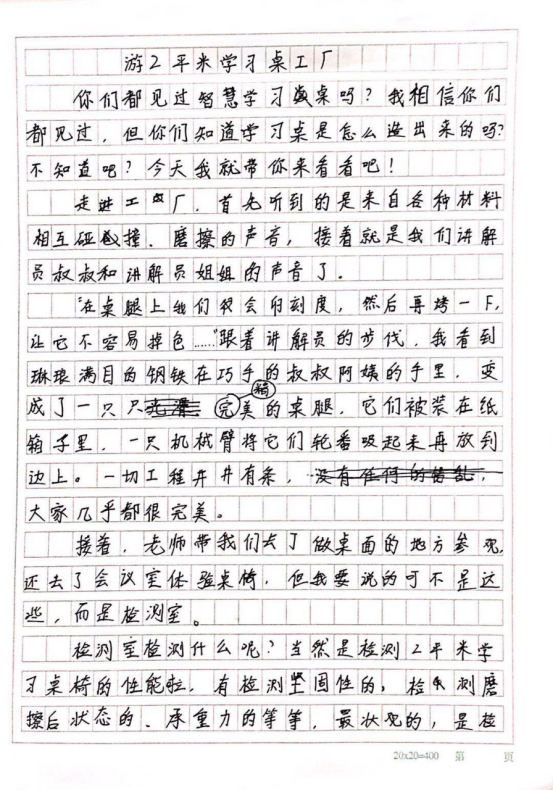 游2平米学习桌工厂
你们都见过智慧学习桌吗？我相信你们
都见过，但你们知道学习桌是怎么造出来的吗？
不知道吧？今天我就带你来看看吧！
走进工厂，首先听到的是来自各种材料
相互碰撞、磨擦的声音，接着就是我们讲解
员叔叔和讲解员姐姐的声音了。
“在桌腿上我们会刻度，然后再烤一下，
让它不容易掉色……”跟着讲解员的步伐，我看到
琳琅满目的钢铁在巧手的叔叔阿姨的手里，变
成了一只只精美的桌腿，它们被装在纸
箱子里，一只机械臂将它们轮番吸起来再放到
边上。一切工程井井有条，
大家几乎都很完美。
接着，老师带我们去了做桌面的地方参观，
还去了会议室体验桌椅，但我要说的可不是这
些，而是检测室。
检测室检测什么呢？当然是检测2平米学
习桌椅的性能啦，有检测坚固性的，检测磨
擦后状态的、承重力的等等，最状观的，是检
20x20=400 第 页